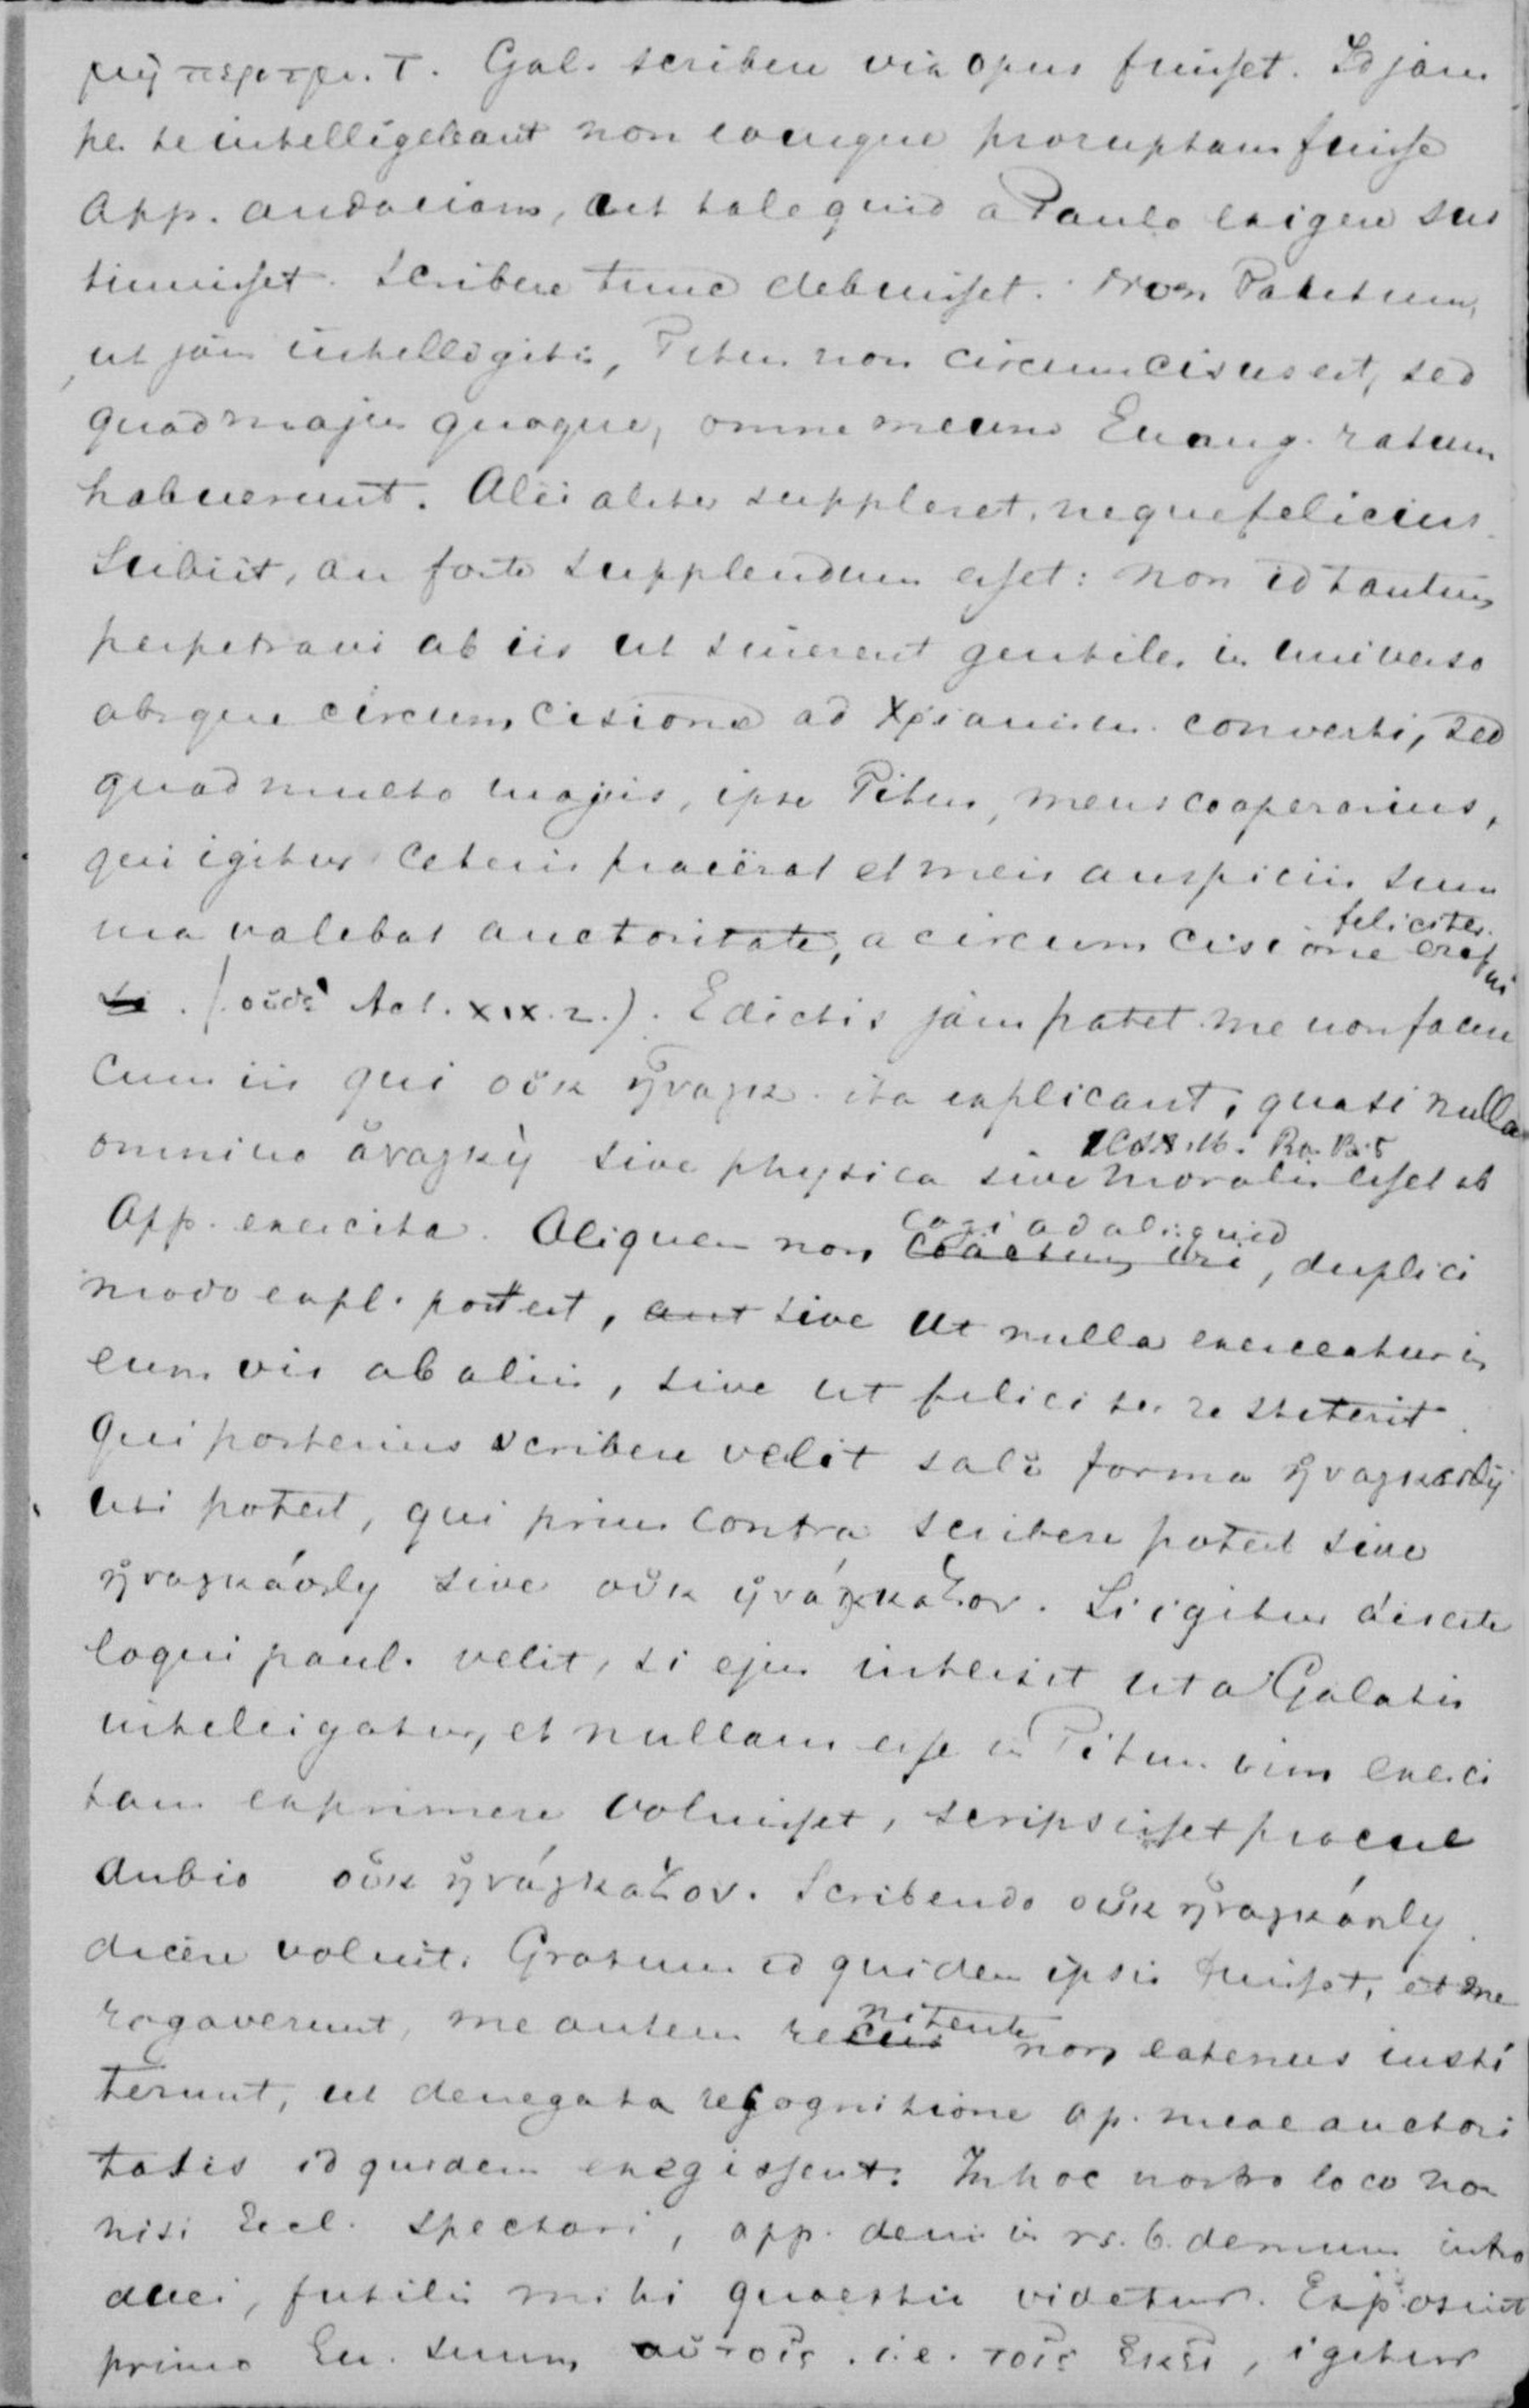 μὴ περιτμ. T. Gal. scribere vix opus fuisset. Id jam
per se intelligebant non eousque proruptam fuisse
App. audaciam, ut tale quid a Paulo exigere sus
tinuisset. Scribere tunc debuisset. Non
ut jam intelligitis, Titus non circumcisus est, sed
quod majus quoque, omne meum Euang. ratum
habuerunt. Alii aliter supplent, neque felicius.
Subiit, an forte supplendum esset: non id tantum
perpetravi ab iis ut sinerent gentiles in universo
absque circumcisione ad Xρianism. converti, sed
quod multo magis, ipse Titus, meus cooperarius,
qui igitur ceteris praeërat et meis auspiciis sum
ma valebat auctoritate, a circumcisione feliciter eripui
. (οὐδὲ Act. XIX. 2.). E dictis jam patet me non facere
cum iis qui οὐκ ἠναγκ. ita explicant, quasi nulla
omnino ἀνάγκη sive physica sive moralis esset ab
App. exercita. Aliquem non cogi ad aliquid, duplici
modo expl. potest, aut sive ut nulla exerceatur in
eum vis ab aliis, sive ut feliciter restiterit.
Qui posterius scribere velit salâ forma ἠναγκάσθη
uti potest, qui prius contra scribere potest sive
ἠναγκάσθη sive οὐκ ἠνάγκαζον. Si igitur diserte
loqui Paul. velit, si ejus intersit ut a Galatis
intelligatur, et nullam esse in Titum vim exerci
tam exprimere voluisset, scripsisset procul
dubio οὐκ ἠνάγκαζον. Scribendo οὐκ ἠναγκάσθη
dicere voluit. Gratum id quidem ipsis fuisset, et me
rogaverunt, me autem renitente non eatenus insti
terunt, ut denegata recognitione ap. meae auctori
tatis id quidem exegissent. In hoc nostro loco non
nisi Eccl. spectari, app. demum in vs. 6. demum intro
duci, futilis mihi quaestio videtur. Exposuit
primo Eu. suum αὐτοῖς. i.e. τοῖς ἐκεῖ, igitur